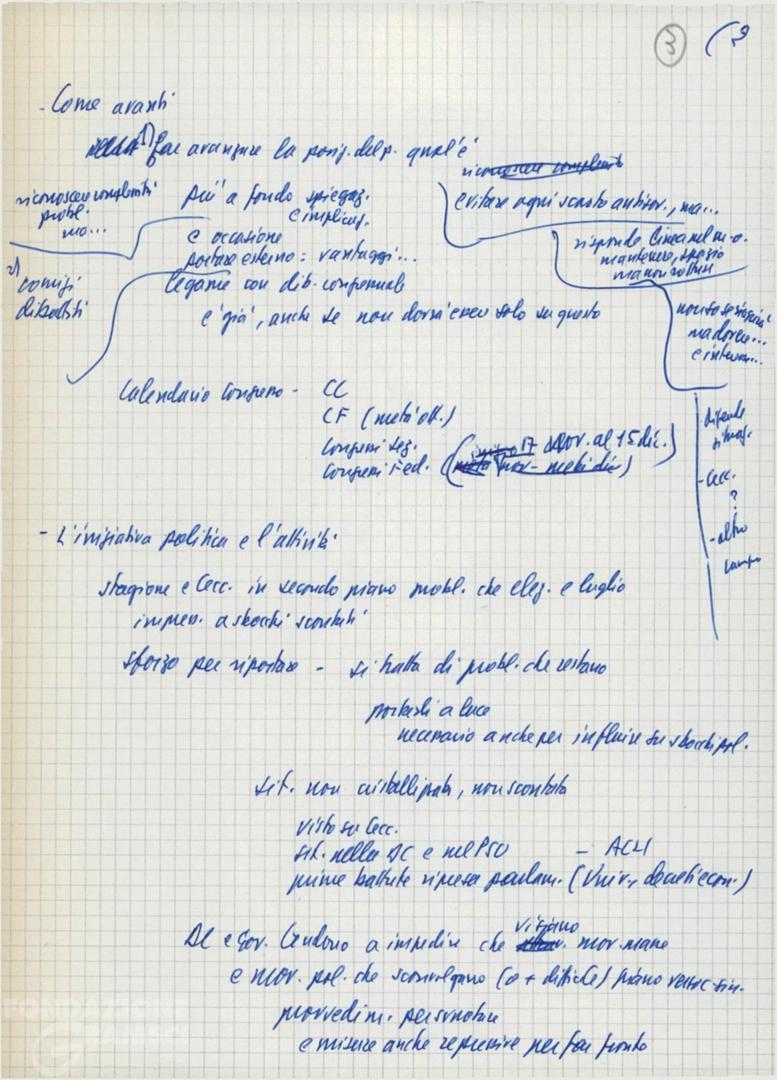 3
- Come avanti
1) far avanzare la posiz. del p. qual'è
riconoscere complessità
probl.
ma...
più a fondo spiegaz.
e implicaz.
e occasione
portare esterno: vantaggi...
riconoscere complessità
evitare ogni sconto antisov., ma...
risponde linea nel m.o.
mantenere, spazio
2) comizi
dibattiti
legame con dib. congressuale
e già, anche se non dovrà essere solo su questo
ma dovere...
e interv...
Calendario Congresso - CC
CF (metà ott.)
Congressi sez.
Congressi Fed.
(inizio 17 nov. al 15 dic.)
(metà nov - metà dic)
difende
- Cecc.
?
- altro
campo
- L'iniziativa politica e l'attività
stagione e Cecc. in secondo piano probl. che elez. e luglio
impress. a sbocchi scontati
sforzo per riportare - si tratta di probl. che restano
portarli a luce
necessario anche per influire su sbocchi pol.
sit. non cristallizzata, non scontata
visto su Cecc.
sit. nella DC e nel PSU - ACLI
prime battute ripresa parlam. (Univ., decreti econ.)
DC e Gov. tendono a impedire che vi siano mov. masse
e mov. pol. che sconvolgano (o + difficile) piano
provvedim.
e misure anche repressive per far fronte
FONDAZIONE